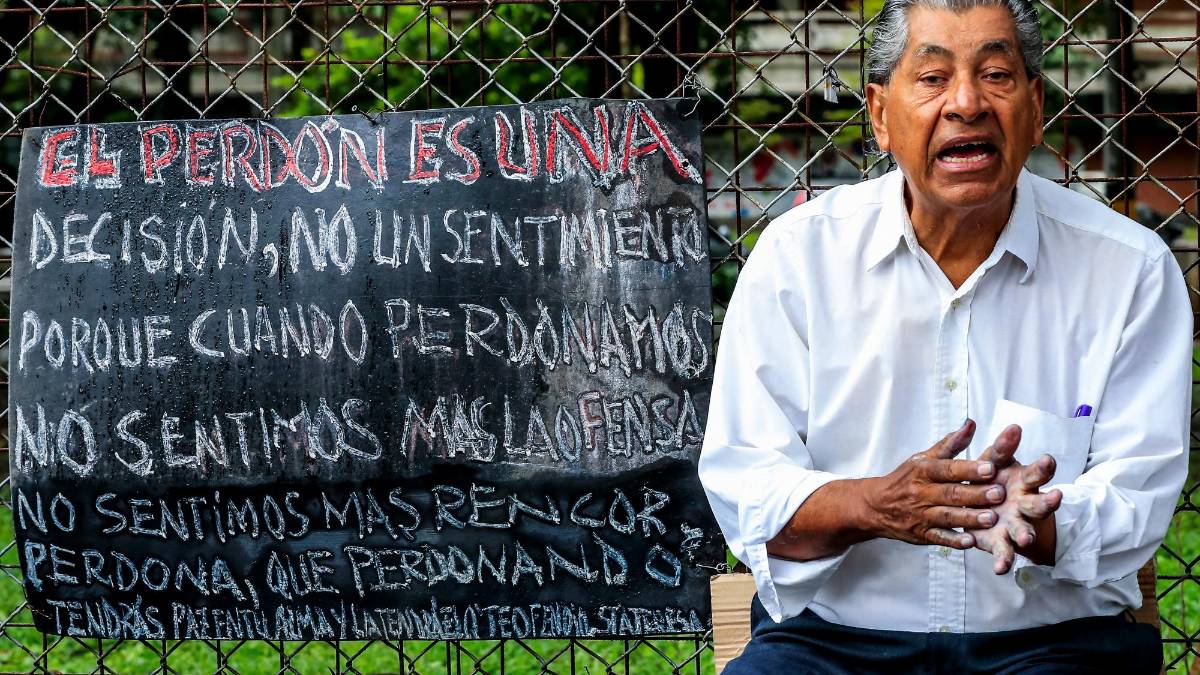 EL PERDÓN ES UNA
DECISIÓN, NO UN SENTIMIENTO
PORQUE CUANDO PERDONAMOS
NO SENTIMOS MAS LA OFENSA
NO SENTIMOS MAS RENCOR.
PERDONA, QUE PERDONANDO
TENDRÁS PAZ EN TU ALMA Y LA TENDRÁ EL QTE OFENDIÓ.